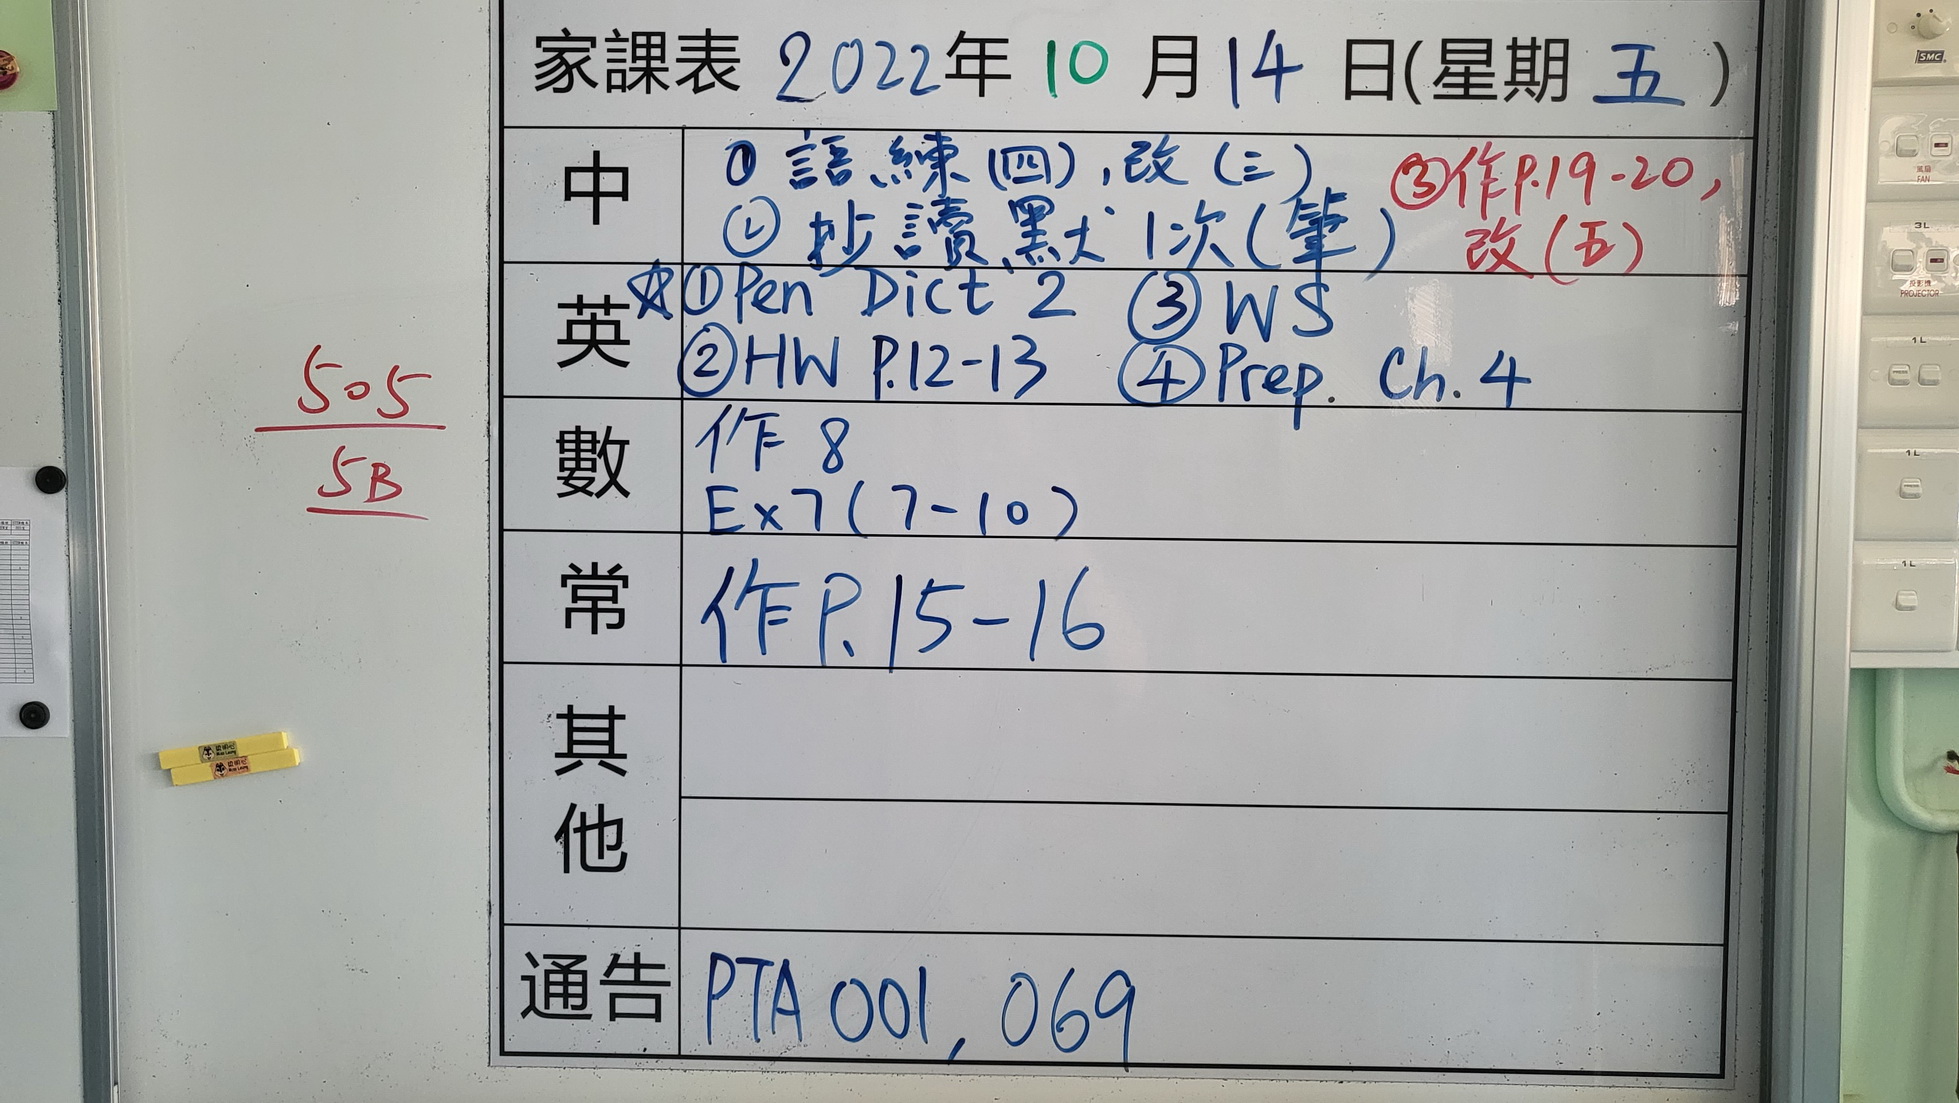 家課表 2022年 10 月 14 日(星期 五)
中
① 語練(四),改(三)
② 抄讀默1次(筆)
③作P.19-20,
改(五)
英
☆①Pen Dict 2 ③ WS
②HW P.12-13 ④Prep. Ch.4
數
作 8
Ex7(7-10)
常
作P.15-16
其他
通告
PTA 001, 069
505
5B
SMC
風扇
FAN
3L
投影機
PROJECTOR
1L
1L
1L